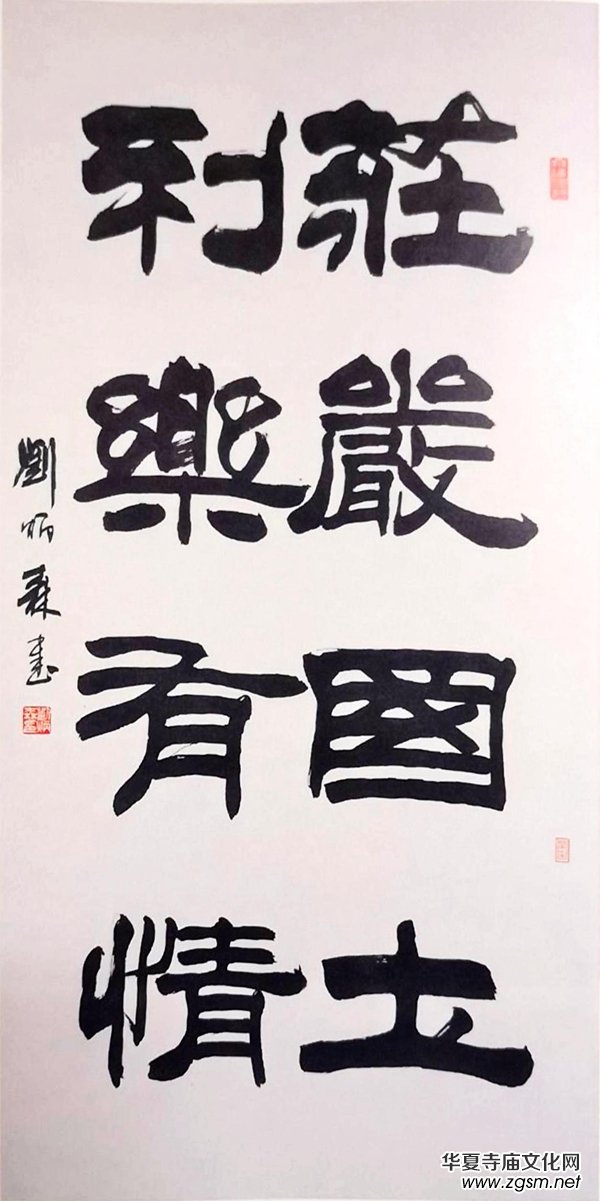 莊嚴國土
利樂有情
劉炳森書
华夏寺庙文化网
www.zgsm.net